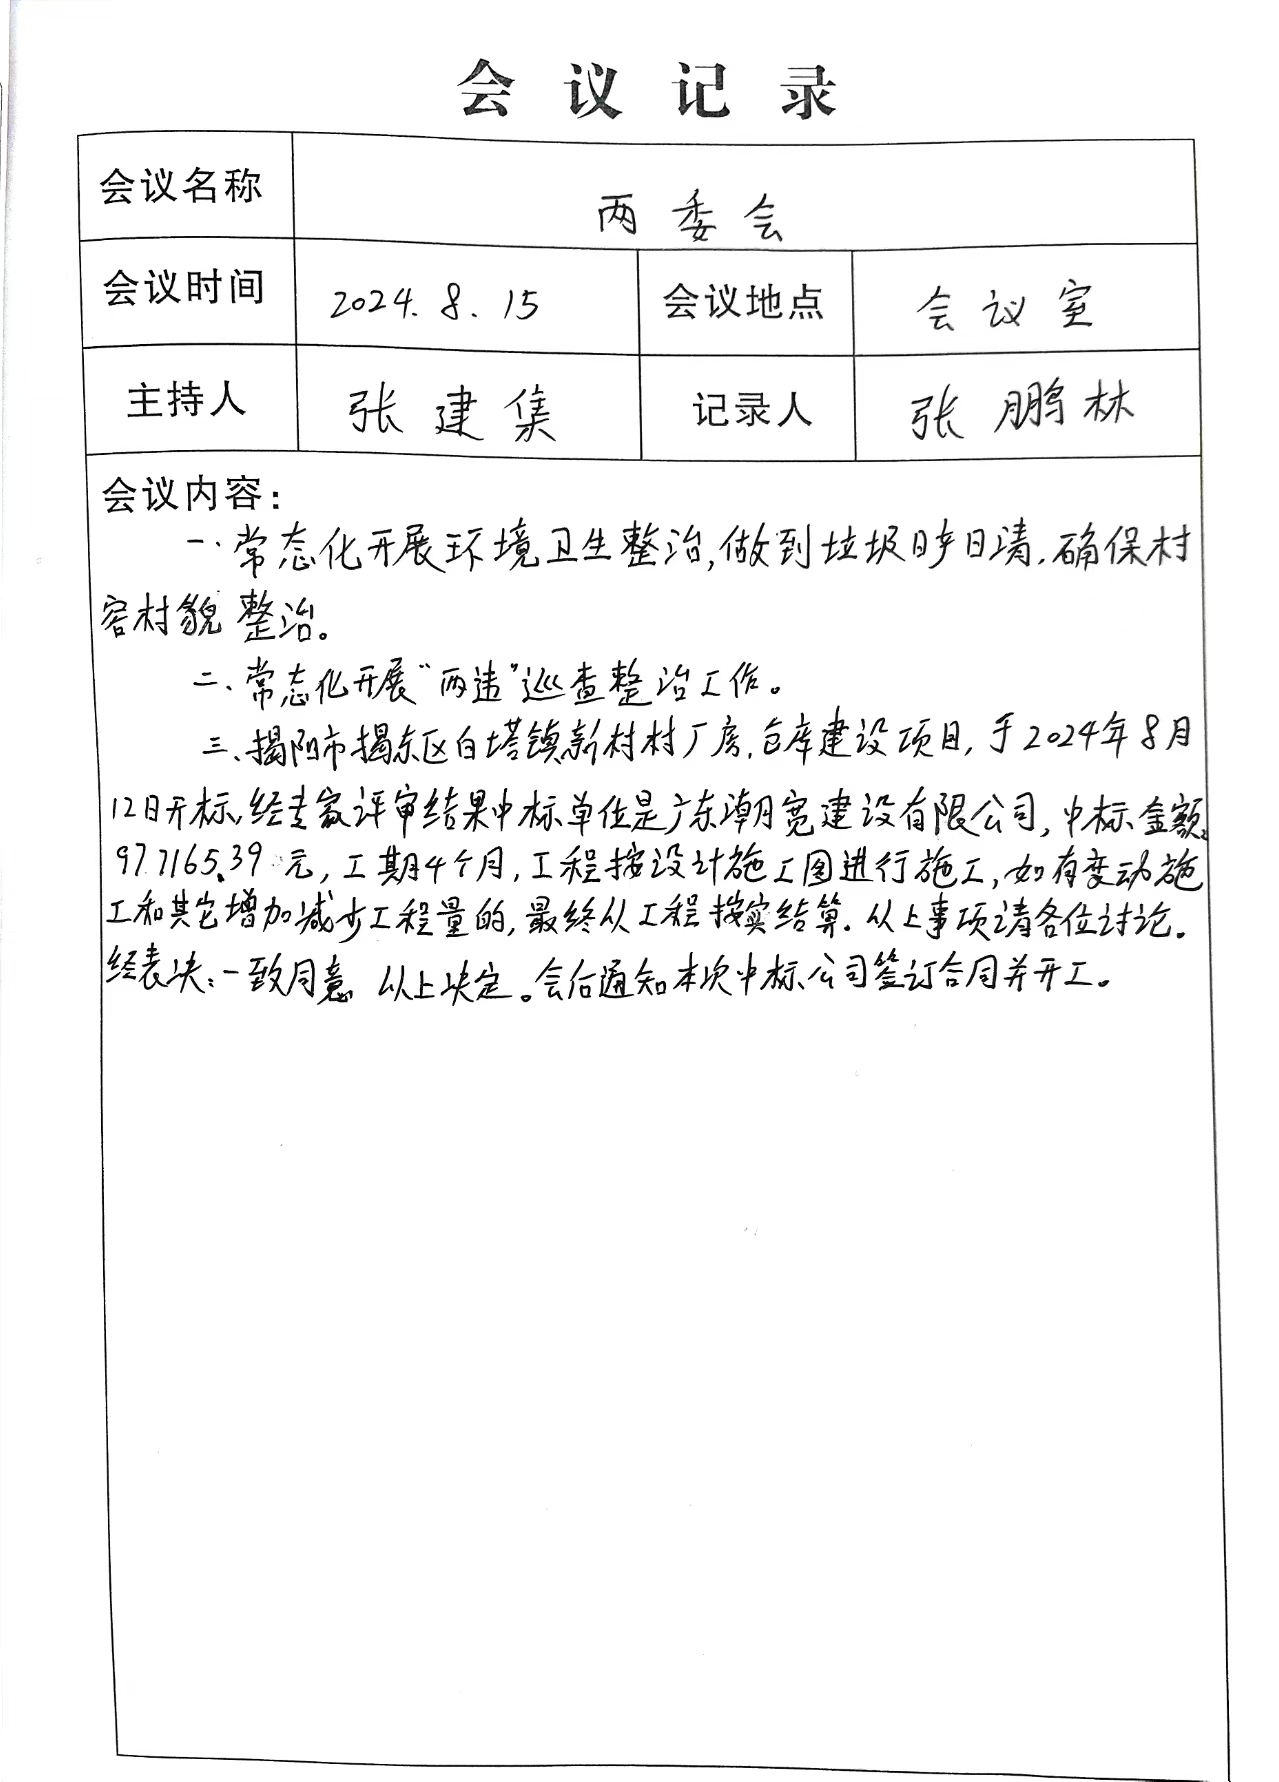 会议记录
会议名称 两委会
会议时间 2024.8.15 会议地点 会议室
主持人 张建集 记录人 张鹏林
会议内容：
一、常态化开展环境卫生整治,做到垃圾日产日清,确保村
容村貌整治。
二、常态化开展“两违”巡查整治工作。
三、揭阳市揭东区白塔镇新村村厂房,仓库建设项目,于2024年8月
12日开标,经专家评审结果中标单位是广东潮宽建设有限公司,中标金额:
977165.39元,工期4个月,工程按设计施工图进行施工,如有变动施
工和其它增加减少工程量的,最终从工程按实结算.以上事项请各位讨论。
经表决:一致同意 以上决定。会后通知本次中标公司签订合同并开工。